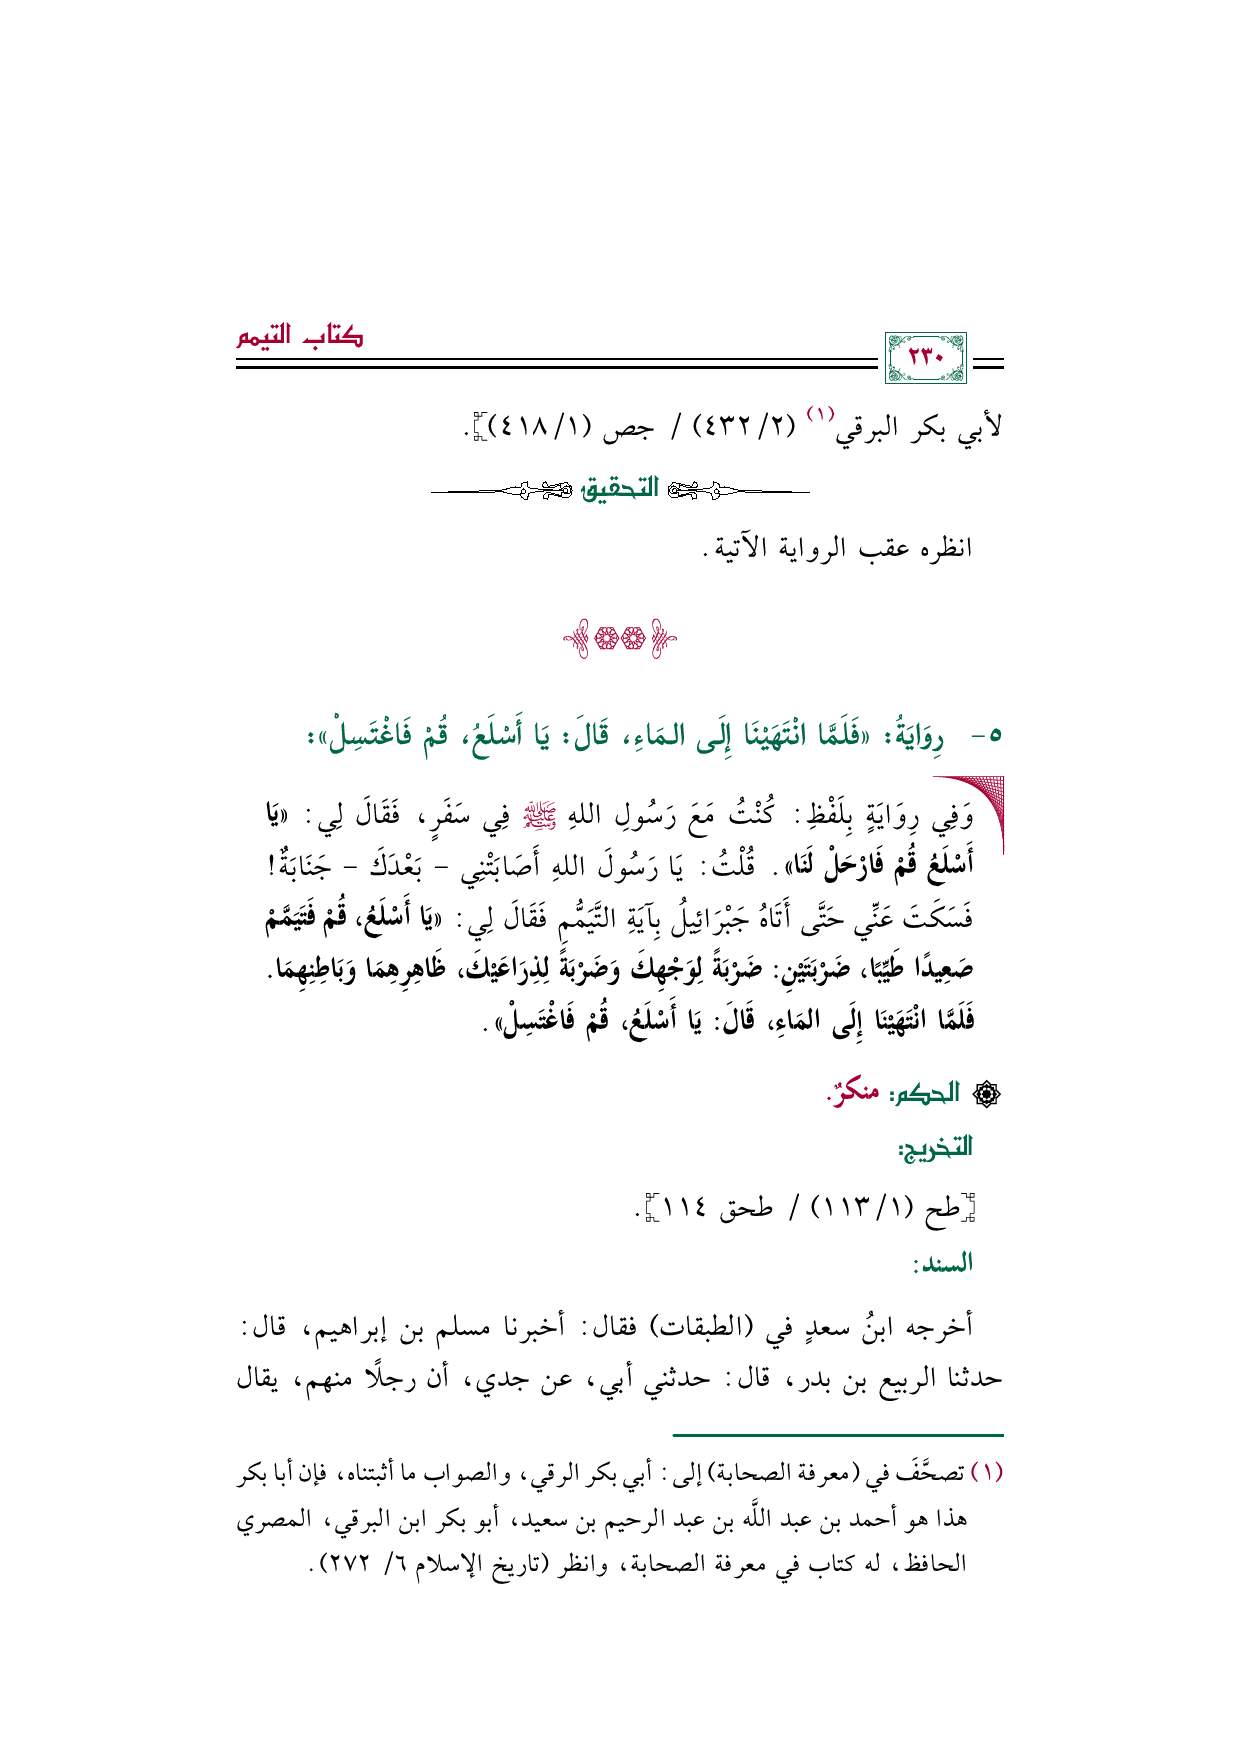 كتاب التيمم
٢٣٠
لأبي بكر البرقي(١) (٢/ ٤٣٢) / جص (١/ ٤١٨)].
التحقيق
انظره عقب الرواية الآتية.
٥- رِوَايَةُ: «فَلَمَّا انْتَهَيْنَا إِلَى المَاءِ، قَالَ: يَا أَسْلَعُ، قُمْ فَاغْتَسِلْ»:
وَفِي رِوَايَةٍ بِلَفْظِ: كُنْتُ مَعَ رَسُولِ اللهِ ﷺ فِي سَفَرٍ، فَقَالَ لِي: «يَا
أَسْلَعُ قُمْ فَارْحَلْ لَنَا». قُلْتُ: يَا رَسُولَ اللهِ أَصَابَتْنِي - بَعْدَكَ - جَنَابَةٌ!
فَسَكَتَ عَنِّي حَتَّى أَتَاهُ جَبْرَائِيلُ بِآيَةِ التَّيَمُّمِ فَقَالَ لِي: «يَا أَسْلَعُ، قُمْ فَتَيَمَّمْ
صَعِيدًا طَيِّبًا، ضَرْبَتَيْنِ: ضَرْبَةً لِوَجْهِكَ وَضَرْبَةً لِذِرَاعَيْكَ، ظَاهِرِهِمَا وَبَاطِنِهِمَا.
فَلَمَّا انْتَهَيْنَا إِلَى المَاءِ، قَالَ: يَا أَسْلَعُ، قُمْ فَاغْتَسِلْ».
الحكم: منكرٌ.
التخريج:
[طح (١/ ١١٣) / طحق ١١٤].
السند:
أخرجه ابنُ سعدٍ في (الطبقات) فقال: أخبرنا مسلم بن إبراهيم، قال:
حدثنا الربيع بن بدر، قال: حدثني أبي، عن جدي، أن رجلًا منهم، يقال
(١) تصحَّفَ في (معرفة الصحابة) إلى: أبي بكر الرقي، والصواب ما أثبتناه، فإن أبا بكر
هذا هو أحمد بن عبد اللَّه بن عبد الرحيم بن سعيد، أبو بكر ابن البرقي، المصري
الحافظ، له كتاب في معرفة الصحابة، وانظر (تاريخ الإسلام ٦/ ٢٧٢).